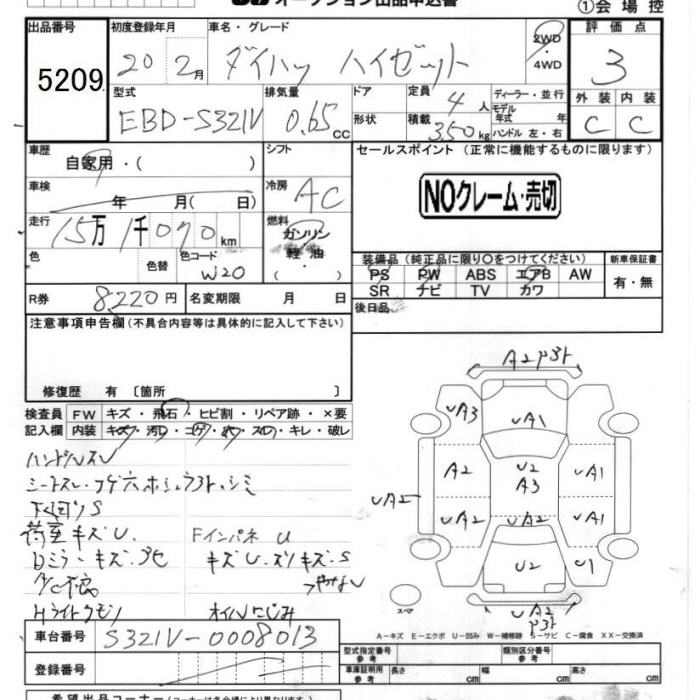 オークション出品申込書
①会場控
出品番号 初度登録年月 車名・グレード 評価点
5209 20年2月 ダイハツ ハイゼット 2WD・4WD 3
型式 排気量 ドア 定員 ディーラー・並行 外装 内装
EBD-S321V 0.65cc 4人 モデル年式 年 C C
形状 積載 350kg ハンドル 左・右
車歴 シフト セールスポイント（正常に機能するものに限ります）
自家用・(
車検 冷房 AC NOクレーム・売切
年 月( 日)
走行 燃料
15万1千070km ガソリン
軽油
色 色替 色コード 装備品（純正品に限り○をつけてください） 新車保証書
W20 PS PW ABS エアB AW 有・無
SR ナビ TV カワ
R券 8220円 名変期限 月 日 後日品
注意事項申告欄（不具合内容等は具体的に記入して下さい）
修復歴 有〔箇所 〕
検査員 FW キズ・飛石・ヒビ割・リペア跡・×要
記入欄 内装 キズ・汚レ・コゲ・穴・スレ・キレ・破レ
ハンドルスレ
シートスレ・コゲ穴
下回りS
荷室キズU. Fインパネ U
Dミラーキズ・
キズU.スリキズ.S
Hライトクモリ オイルにじみ
A2
UA3 UA1
A2 U2 A3 UA1
UA2 UA2 UA2 UA1
U2 U1
スペア UA2
A－キズ E－エクボ U－凹み W－補修跡 S－サビ C－腐食 XX－交換済
車台番号 S321V-0008013
型式指定番号 参考 類別区分番号 参考
登録番号 車庫証明用 参考 長さ cm 幅 cm 高さ cm
希望出品コーナー